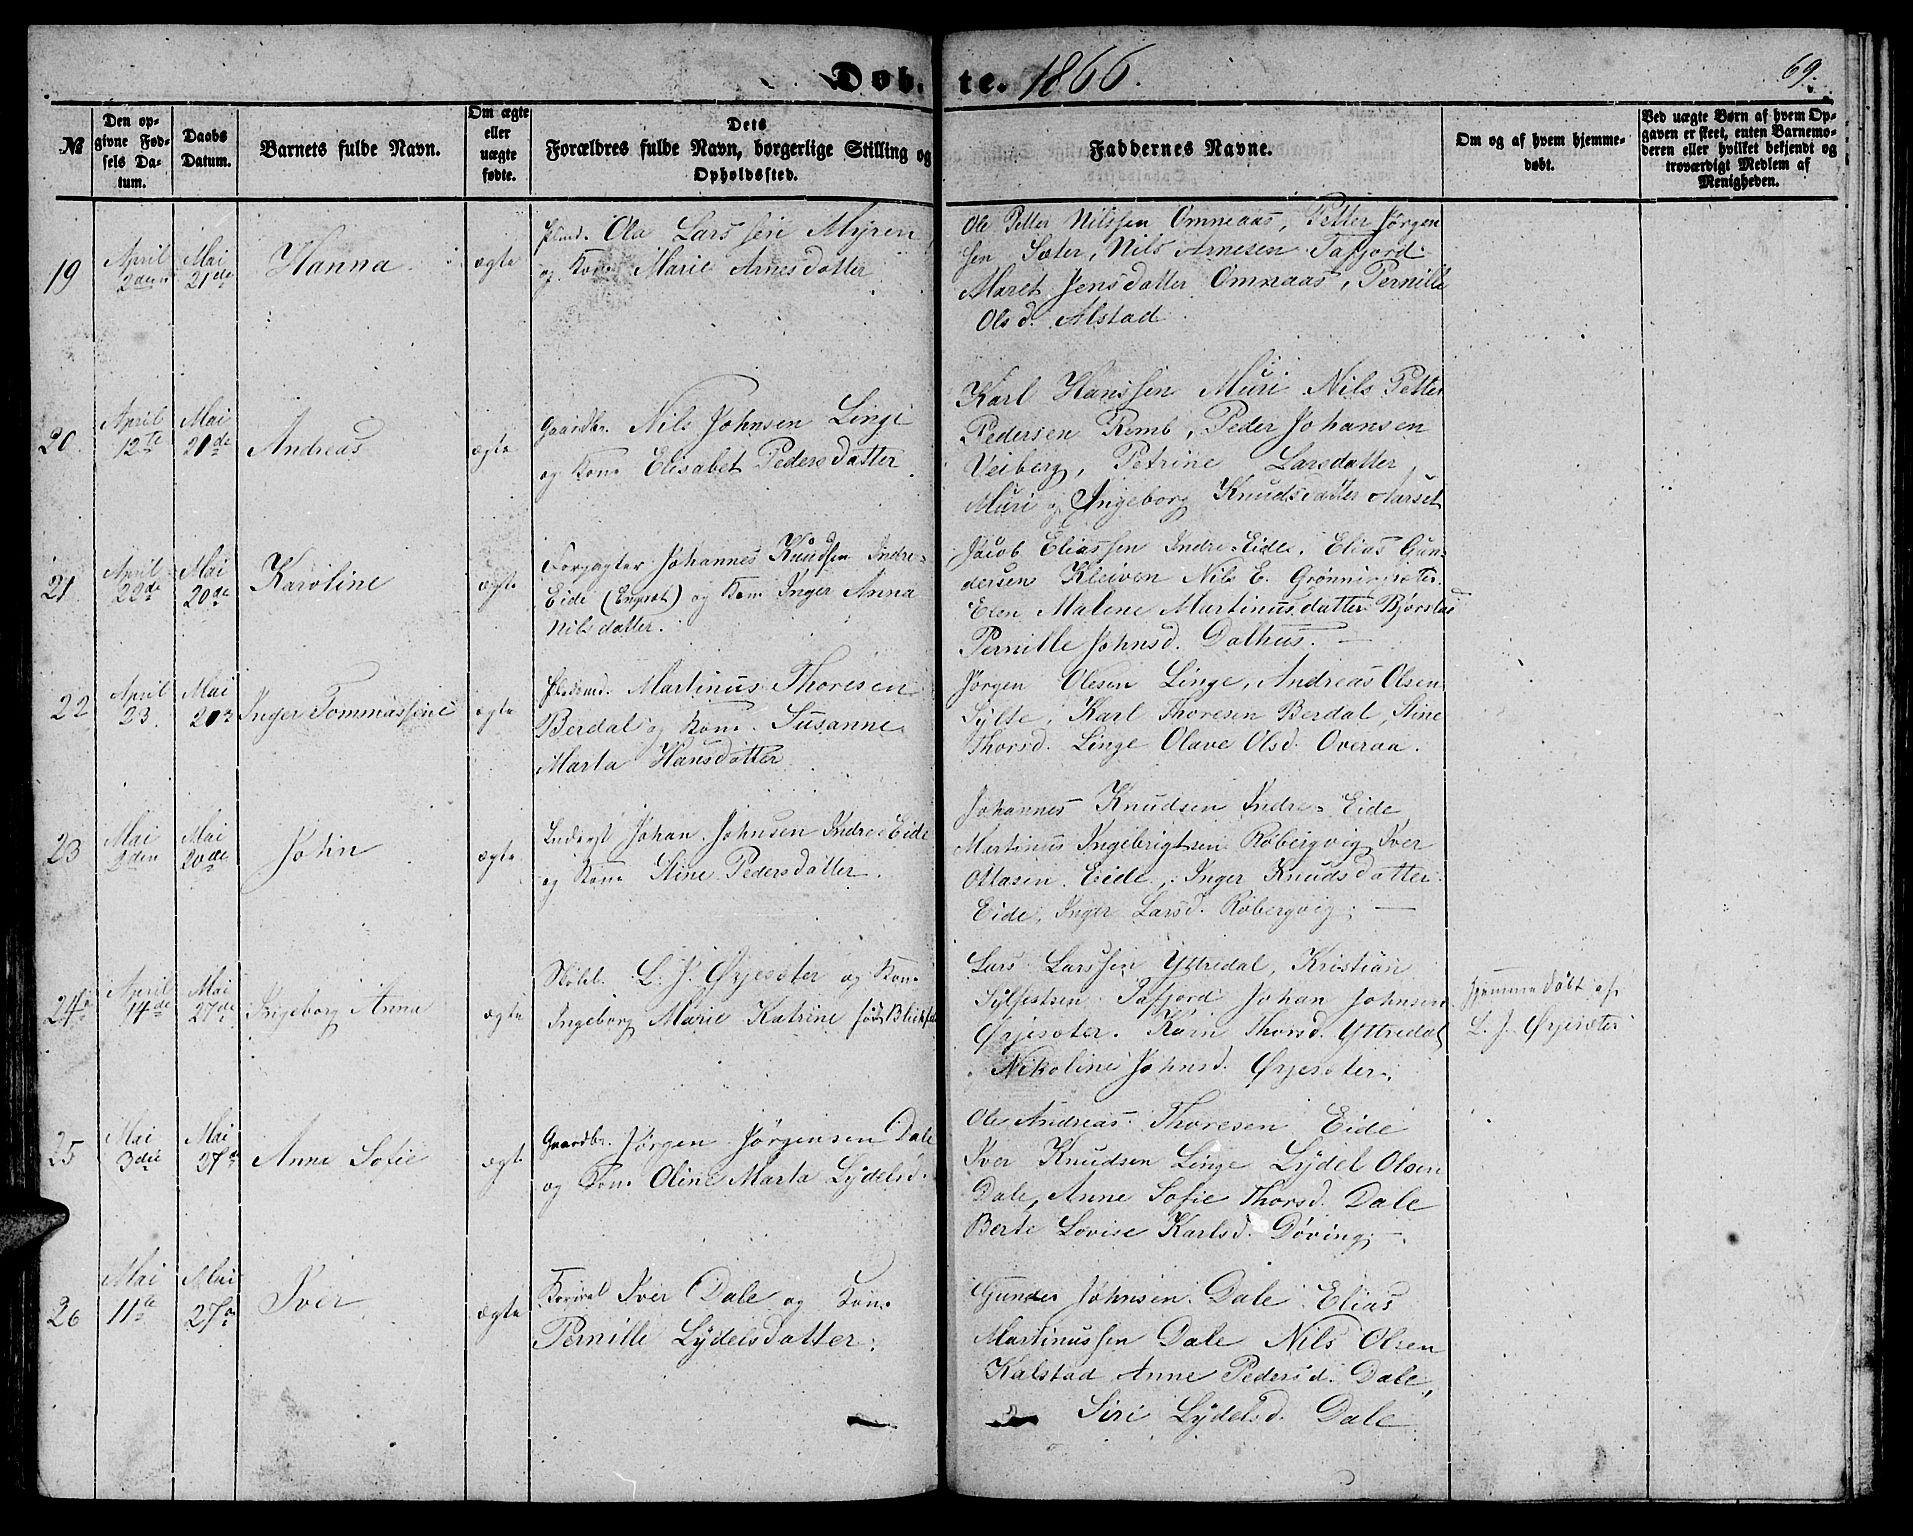 Døb-te. 1866.
69.
№
Den opgivne Fødsels Datum.
Daabs Datum.
Barnets fulde Navn.
Om ægte eller uægte fødte.
Dets Forældres fulde Navn, borgerlige Stilling og Opholdssted.
Faddernes Navne.
Om og af hvem hjemmedøbt.
Ved uægte Børn af hvem Opgaven er skeet, enten Barnemoderen eller hvilket bekjendt og troværdigt Medlem af Menigheden.
19
April 2den
Mai 21de
Hanna
ægte
Ole Larssen Myren
og Kone Marie Arnesdatter
Ole Petter Nilssen Omnaas, Petter Jørgen
sen Sæter, Nils Arnesen Tafjord
Maret Jensdatter Omnaas, Pernille
Olsd. Alstad
20
April 12te
Mai 21de
Andreas
ægte
Gaardbr. Nils Johnsen Linge
og Kone Elisabet Pedersdatter
Karl Hanssen Muri Nils Petter
Pedersen Remb, Peder Johansen
Veiberg, Petrine Larsdatter
Muri og Ingeborg Knudsdatter Aarset
21
April 22de
Mai 20de
Karoline
ægte
Forpagter Johannes Knudsen Indre-
Eide (Engset) og Kone Inger Anna
Nilsdatter.
Jacob Eliassen Indre-Eide, Elias Gun-
dersen Kleiven Nils E. Grønningsæter.
Elen Malene Martinusdatter Bjørstad
Pernille Johnsd. Dalhus. —
22
April 23.
Mai 20
Inger Tommassine
ægte
Martinus Thoresen
Berdal og Kone Susanne
Marta Hansdatter
Jørgen Olesen Linge, Andreas Olsen
Sylte, Karl Thoresen Berdal, Stine
Thorsd. Linge Olave Olsd. Overaa.
23
Mai 2den
Mai 20de
John
ægte
Inderst Johan Johnsen Indre Eide
og Kone Stine Pedersdatter.
Johannes Knudsen Indre-Eide
Martinus Ingebrigtsen Robergvig Iver
Ottasen Eide, Inger Knudsdatter
Eide, Inger Larsd. Robergvig; —
24
April 14de
Mai 27de
Ingeborg Anna
ægte
L. J. Øvjesæter og Kone
Ingeborg Marie Katrine født
Lars Larssen Yttredal, Kristian
Sylfestsen Tafjord Johan Johnsen
Øvjesæter. Karn Thorsd. Yttredal
Nikoline Johnsd. Øvjesæter.
hjemmedøbt af
L. J. Øvjesæter
25
Mai 3die
Mai 27de
Anna Sofie
ægte
Gaardbr. Jørgen Jørgensen Dale
og Kone Oline Marta Lydelsd.
Ole Andreas Thoresen Eide
Iver Knudsen Linge Lydel Olsen
Dale, Anne Sofie Thorsd. Dale
Berte Lovise Karlsd. Døving; —
26
Mai 11te
Mai 27de
Iver
ægte
Iver Dale og Kone
Pernille Lydelsdatter.
Gunder Johnsen Dale Elias
Martinussen Dale Nils Olsen
Kalstad Anne Pedersd. Dale,
Siri Lydelsd. Dale